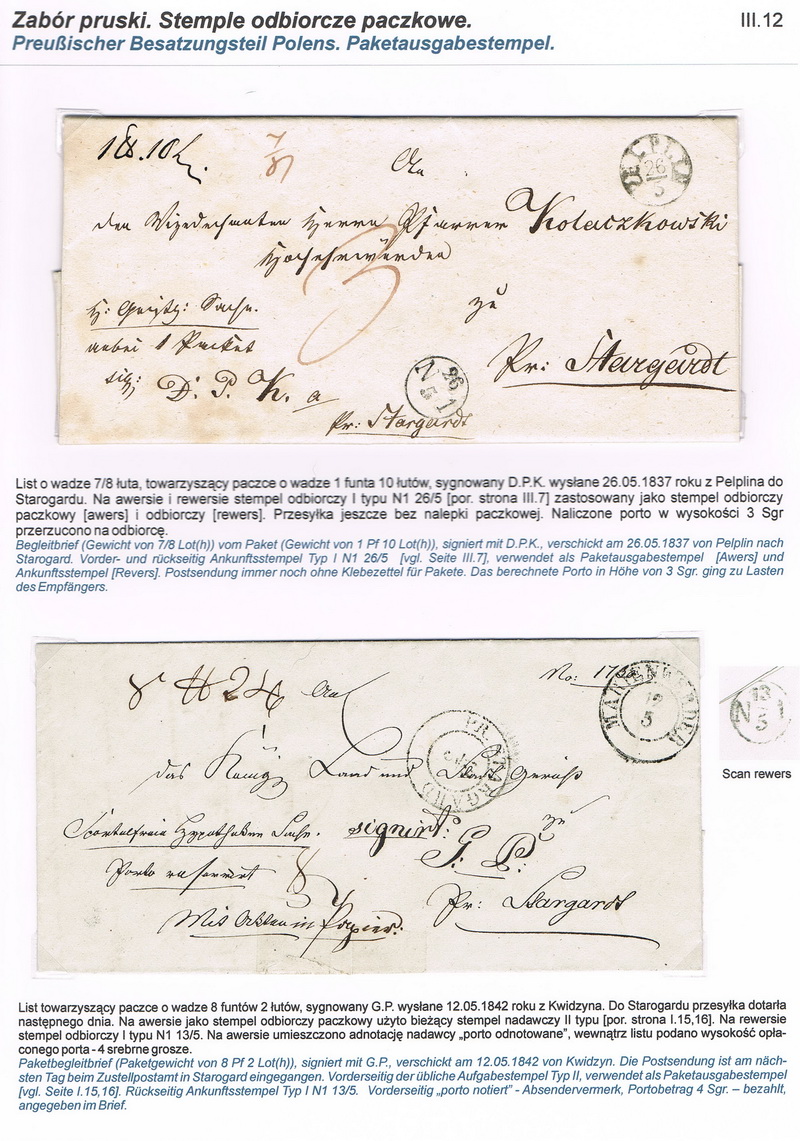 Zabór pruski. Stemple odbiorcze paczkowe.
III.12
Preußischer Besatzungsteil Polens. Paketausgabestempel.
An
PELPLIN
26
5
den Vizedechanten Herrn Pfarrer Kolaczkowski
Hochehrwürden
3
zu
H: Geistl: Sache.
anbei 1 Packet
sig: D. P. K. a
Pr: Stargardt
N 1
26
5
Pr: Stargardt
List o wadze 7/8 łuta, towarzyszący paczce o wadze 1 funta 10 łutów, sygnowany D.P.K. wysłane 26.05.1837 roku z Pelplina do
Starogardu. Na awersie i rewersie stempel odbiorczy I typu N1 26/5 [por. strona III.7] zastosowany jako stempel odbiorczy
paczkowy [awers] i odbiorczy [rewers]. Przesyłka jeszcze bez nalepki paczkowej. Naliczone porto w wysokości 3 Sgr
przerzucono na odbiorcę.
Begleitbrief (Gewicht von 7/8 Lot(h)) vom Paket (Gewicht von 1 Pf 10 Lot(h)), signiert mit D.P.K., verschickt am 26.05.1837 von Pelplin nach
Starogard. Vorder- und rückseitig Ankunftsstempel Typ I N1 26/5 [vgl. Seite III.7], verwendet als Paketausgabestempel [Awers] und
Ankunftsstempel [Revers]. Postsendung immer noch ohne Klebezettel für Pakete. Das berechnete Porto in Höhe von 3 Sgr. ging zu Lasten
des Empfängers.
An
No:
MARIENWERDER
12
5
das Königl Land und Stadt Gericht
PR. STARGARD
N 1
13
5
Scan rewers
Sportelfreie Hypotheken Sache. signirt: G. P. zu
Porto
Pr: Stargardt
Mit Akten in Papier.
List towarzyszący paczce o wadze 8 funtów 2 łutów, sygnowany G.P. wysłane 12.05.1842 roku z Kwidzyna. Do Starogardu przesyłka dotarła
następnego dnia. Na awersie jako stempel odbiorczy paczkowy użyto bieżący stempel nadawczy II typu [por. strona I.15,16]. Na rewersie
stempel odbiorczy I typu N1 13/5. Na awersie umieszczono adnotację nadawcy „porto odnotowane”, wewnątrz listu podano wysokość opła-
conego porta - 4 srebrne grosze.
Paketbegleitbrief (Paketgewicht von 8 Pf 2 Lot(h)), signiert mit G.P., verschickt am 12.05.1842 von Kwidzyn. Die Postsendung ist am näch-
sten Tag beim Zustellpostamt in Starogard eingegangen. Vorderseitig der übliche Aufgabestempel Typ II, verwendet als Paketausgabestempel
[vgl. Seite I.15,16]. Rückseitig Ankunftsstempel Typ I N1 13/5. Vorderseitig „porto notiert” - Absendervermerk, Portobetrag 4 Sgr. – bezahlt,
angegeben im Brief.